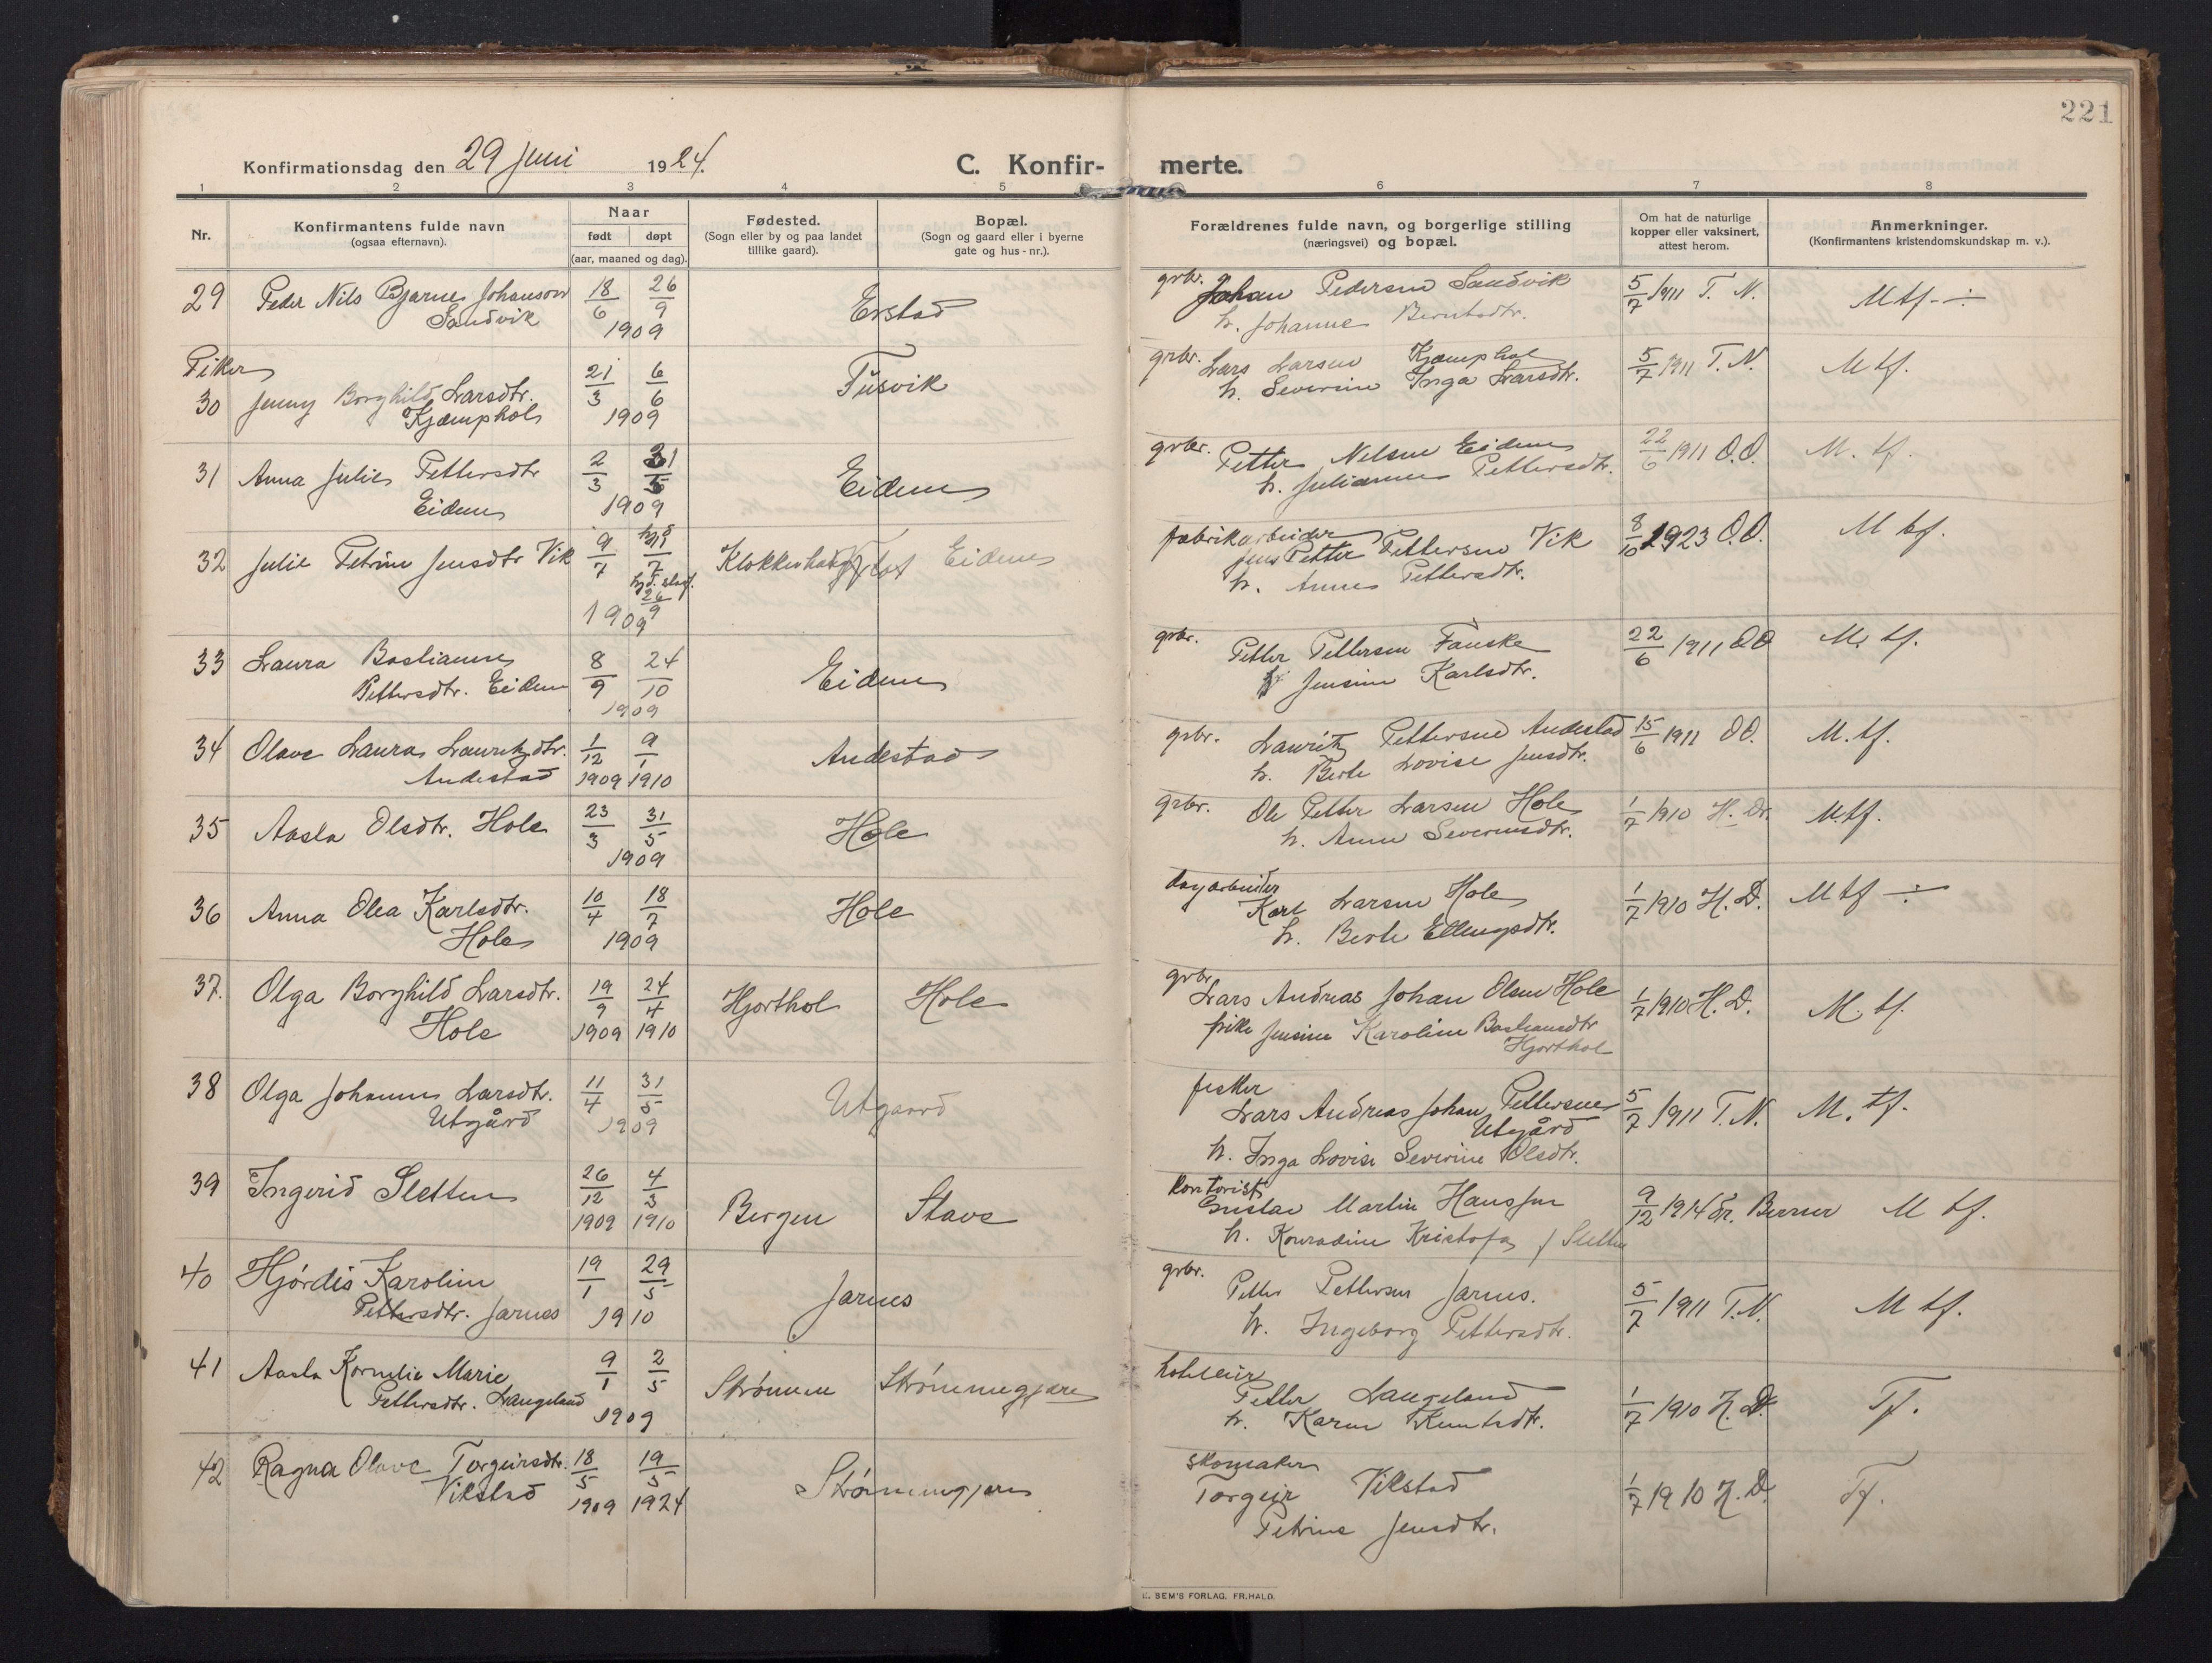 221
Konfirmationsdag den 29 juni 1924.
C. Konfir- merte.
1 2 3 4 5 6 7 8
Nr.
Konfirmantens fulde navn
(ogsaa efternavn).
Naar
født døpt
(aar, maaned og dag).
Fødested.
(Sogn eller by og paa landet
tillike gaard).
Bopæl.
(Sogn og gaard eller i byerne
gate og hus-nr.).
Forældrenes fulde navn, og borgerlige stilling
(næringsvei) og bopæl.
Om hat de naturlige
kopper eller vaksinert,
attest herom.
Anmerkninger.
(Konfirmantens kristendomskundskap m. v.).
29 Peder Nils Bjarne Johanson
Sandvik
18/6 26/9
1909
Erstad
grbr. Johan Pedersen Sandvik
h. Johanne Berntsdtr.
5/7 1911 T. N.
Mtf ÷
Piker
30 Jenny Borghild Larsdtr.
Kjæmphol
21/3 6/6
1909
Tusvik
grbr. Lars Larsen Kjæmphol
h. Severine Inga Larsdtr.
5/7 1911 T. N.
M tf.
31 Anna Julie Pettersdtr
Eidem
2/3 31/5
1909
Eidem
grbr. Petter Nelsen Eidem
h. Julianne Pettersdtr.
22/6 1911 O.O.
M. tf.
32 Julie Petrine Jensdtr Vik
9/7
26/9
1909
Eidem
fabrikarbeider
Jens Petter Pettersen Vik
h. Anne Pettersdtr.
8/10 1923 O.O.
M tf.
33 Laura Bastianne
Pettersdtr. Eidem
8/9 24/10
1909
Eidem
grbr.
Petter Pettersen Fauske
Jensine Karlsdtr.
22/6 1911 O.O
M. tf.
34 Olave Laura Lauritzdtr.
Andestad
1/12 9/1
1909 1910
Andestad
grbr. Lauritz Pettersen Andestad
h. Berte Lovise Jensdtr.
15/6 1911 O.O.
M. tf.
35 Aasla Olsdtr. Hole
23/3 31/5
1909
Hole
grbr. Ole Petter Larsen Hole
h. Anne Severinsdtr.
1/7 1910 H. D.
M. tf.
36 Anna Olea Karlsdtr.
Hole
10/4 18/7
1909
Hole
dagarbeider
Karl Larsen Hole
h. Berte Ellingsdtr.
1/7 1910 H. D.
M tf ÷
37. Olga Borghild Larsdtr.
Hole
19/9 24/4
1909 1910
Hjorthol
Hole
grbr
Lars Andreas Johan Olsen Hole
pike Jensine Karoline Bastiansdtr
Hjorthol
1/7 1910 H. D.
M. tf.
38 Olga Johanne Larsdtr.
Utgård
11/4 31/5
1909
Utgaard
fisker
Lars Andreas Johan Pettersen
Utgård
h. Inga Lovise Severine Olsdtr.
5/7 1911 T. N.
M. tf.
39 Ingerid Sletten
26/12 4/3
1909 1910
Bergen
Stave
kontorist
Gustav Martin Hanssen
h. Konradine Kristofa f Sletten
9/12 1914
M tf.
40 Hjørdis Karoline
Pettersdtr. Jarnes
19/1 29/5
1910
Jarnes
grbr.
Petter Pettersen Jarnes.
h. Ingeborg Pettersdtr.
5/7 1911 T.N.
M tf.
41 Aasla Kornelie Marie
Pettersdtr. Langeland
9/1 2/5
1909
Strømme
Strømmegjære
Petter Langeland
h. Karen Knutsdtr.
1/7 1910 H. D.
Tf.
42 Ragna Olave Torgeirsdtr.
Vikstad
18/5 19/5
1909 1924
Strømmegjære
skomaker
Torgeir Vikstad
Petrine Jensdtr.
1/7 1910 H. D.
Tf.
E. SEM'S FORLAG. FR.HALD.